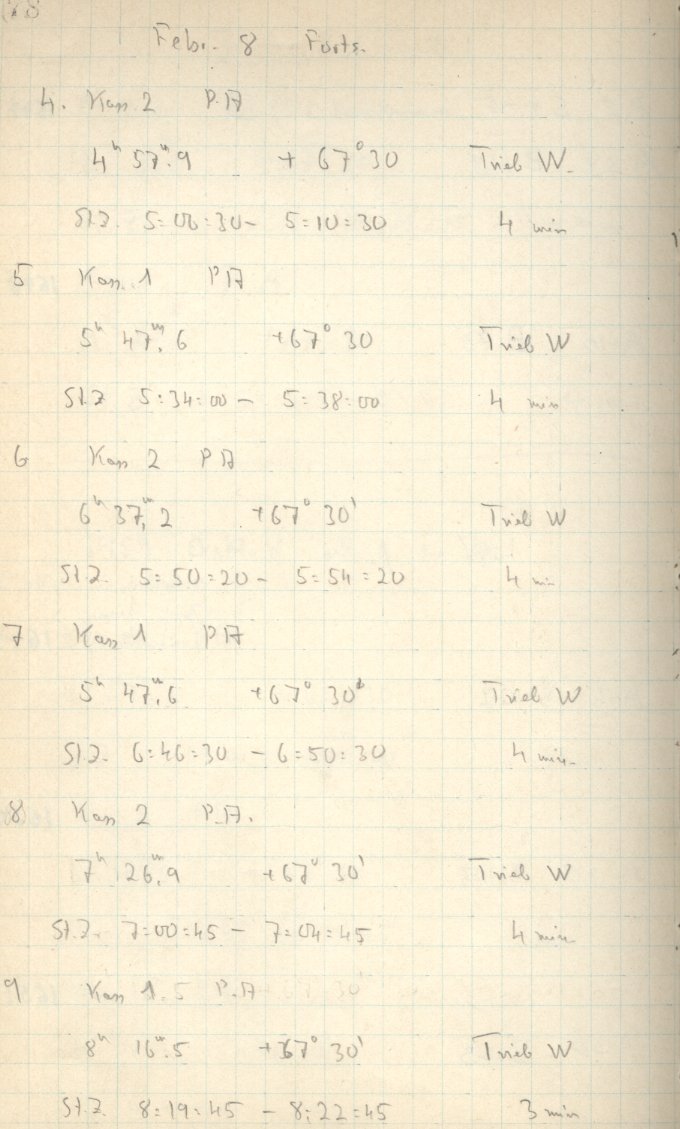 Febr. 8 Forts.
4. Kass 2 P.A
4ʰ 57ᵐ.9 + 67° 30 Trieb W.
St.Z. 5:06:30 - 5:10:30 4 min
5 Kass. 1 PA
5ʰ 47ᵐ.6 +67° 30 Trieb W
St.Z 5:34:00 - 5:38:00 4 min
6 Kass 2 PA
6ʰ 37ᵐ,2 +67° 30' Trieb W
St.Z. 5:50:20 - 5:54:20 4 min
7 Kass 1 PA
5ʰ 47ᵐ.6 +67° 30' Trieb W
St.Z. 6:46:30 - 6:50:30 4 min.
8 Kass 2 P.A.
7ʰ 26ᵐ.9 +67° 30' Trieb W
St.Z. 7:00:45 - 7:04:45 4 min
9 Kass 1.5 P.A
8ʰ 16ᵐ.5 +67° 30' Trieb W
St.Z. 8:19:45 - 8:22:45 3 min